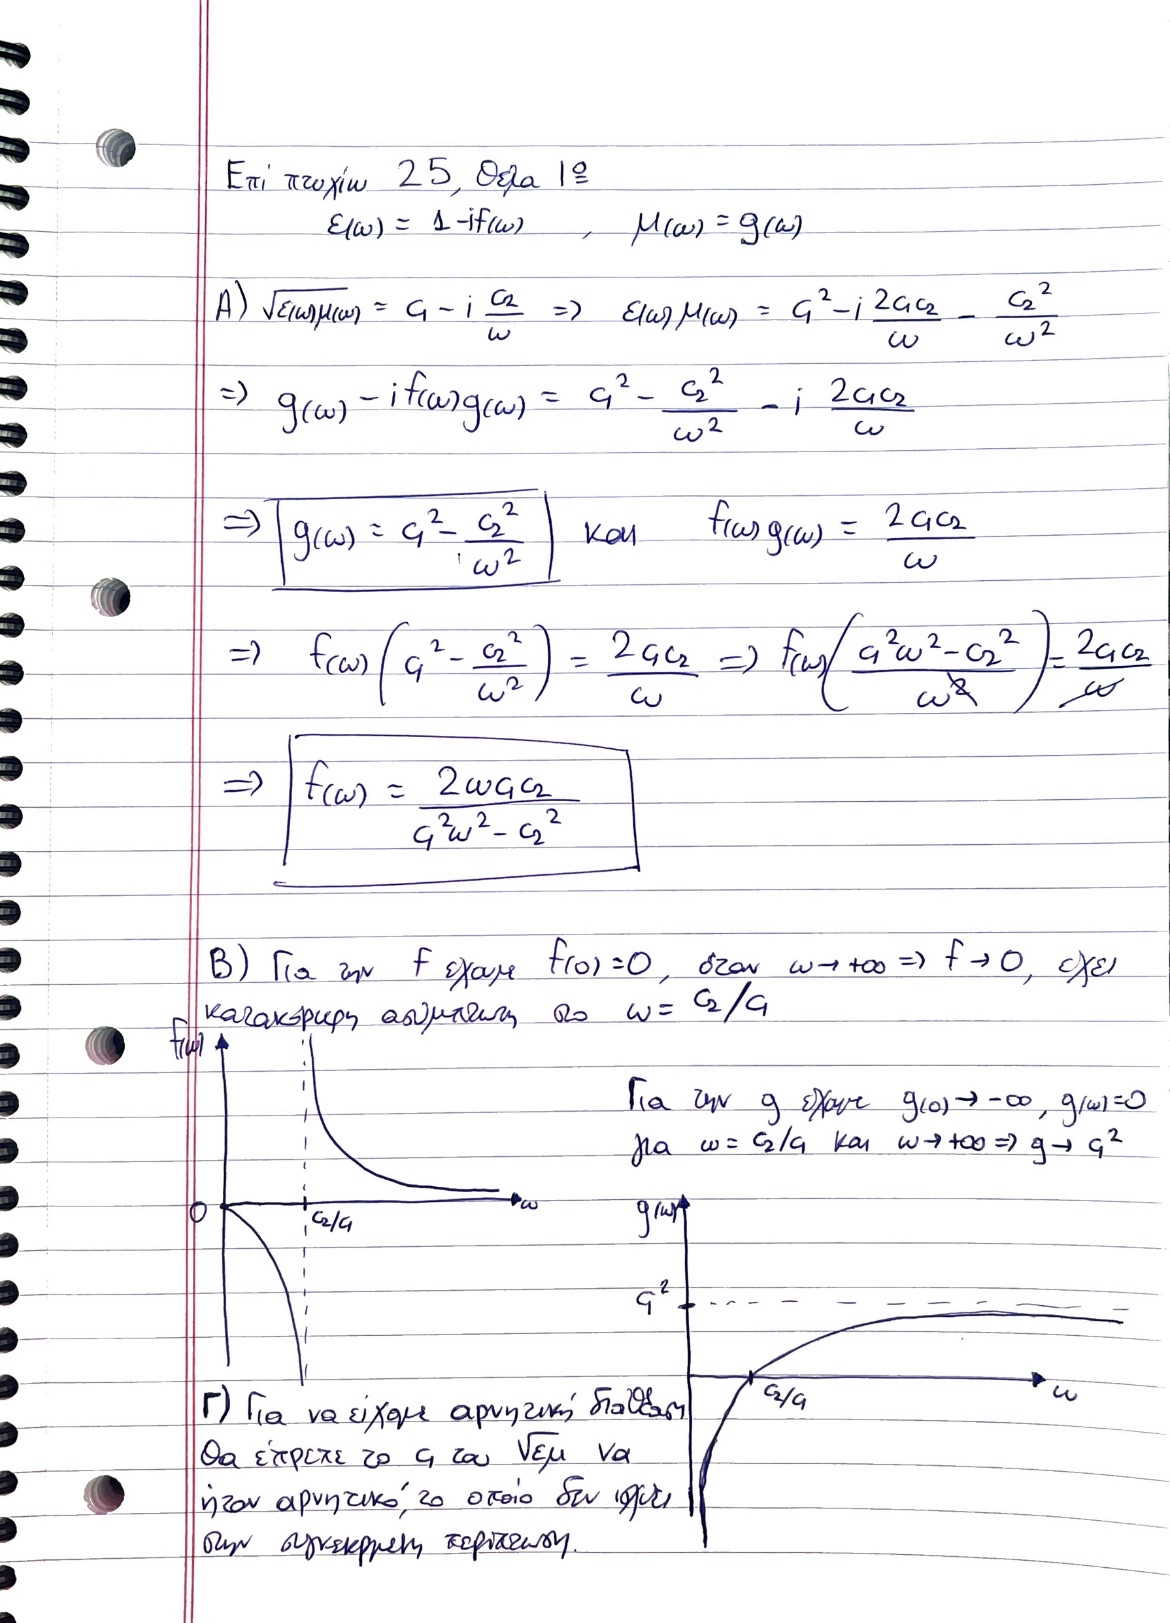 Επί πτυχίω 25, Θέμα 1º
ε(ω) = 1-if(ω) , μ(ω) = g(ω)
A) √ε(ω)μ(ω) = c₁ - i c₂/ω => ε(ω)μ(ω) = c₁² - i 2c₁c₂/ω - c₂²/ω²
=> g(ω) - if(ω)g(ω) = c₁² - c₂²/ω² - i 2c₁c₂/ω
=> g(ω) = c₁² - c₂²/ω² και f(ω)g(ω) = 2c₁c₂/ω
=> f(ω)(c₁² - c₂²/ω²) = 2c₁c₂/ω => f(ω)((c₁²ω² - c₂²)/ω²) = 2c₁c₂/ω
=> f(ω) = 2ωc₁c₂/(c₁²ω² - c₂²)
B) Για την f έχουμε f(0)=0, όταν ω→+∞ => f→0, έχει
κατακόρυφη ασύμπτωτη στο ω = c₂/c₁
f(ω)
Για την g έχουμε g(0)→-∞, g(ω)=0
για ω = c₂/c₁ και ω→+∞ => g→c₁²
0
c₂/c₁
ω
g(ω)
c₁²
c₂/c₁
ω
Γ) Για να είχαμε αρνητική διάθλαση
θα έπρεπε το c₁ του √εμ να
ήταν αρνητικό, το οποίο δεν ισχύει
στην συγκεκριμένη περίπτωση.